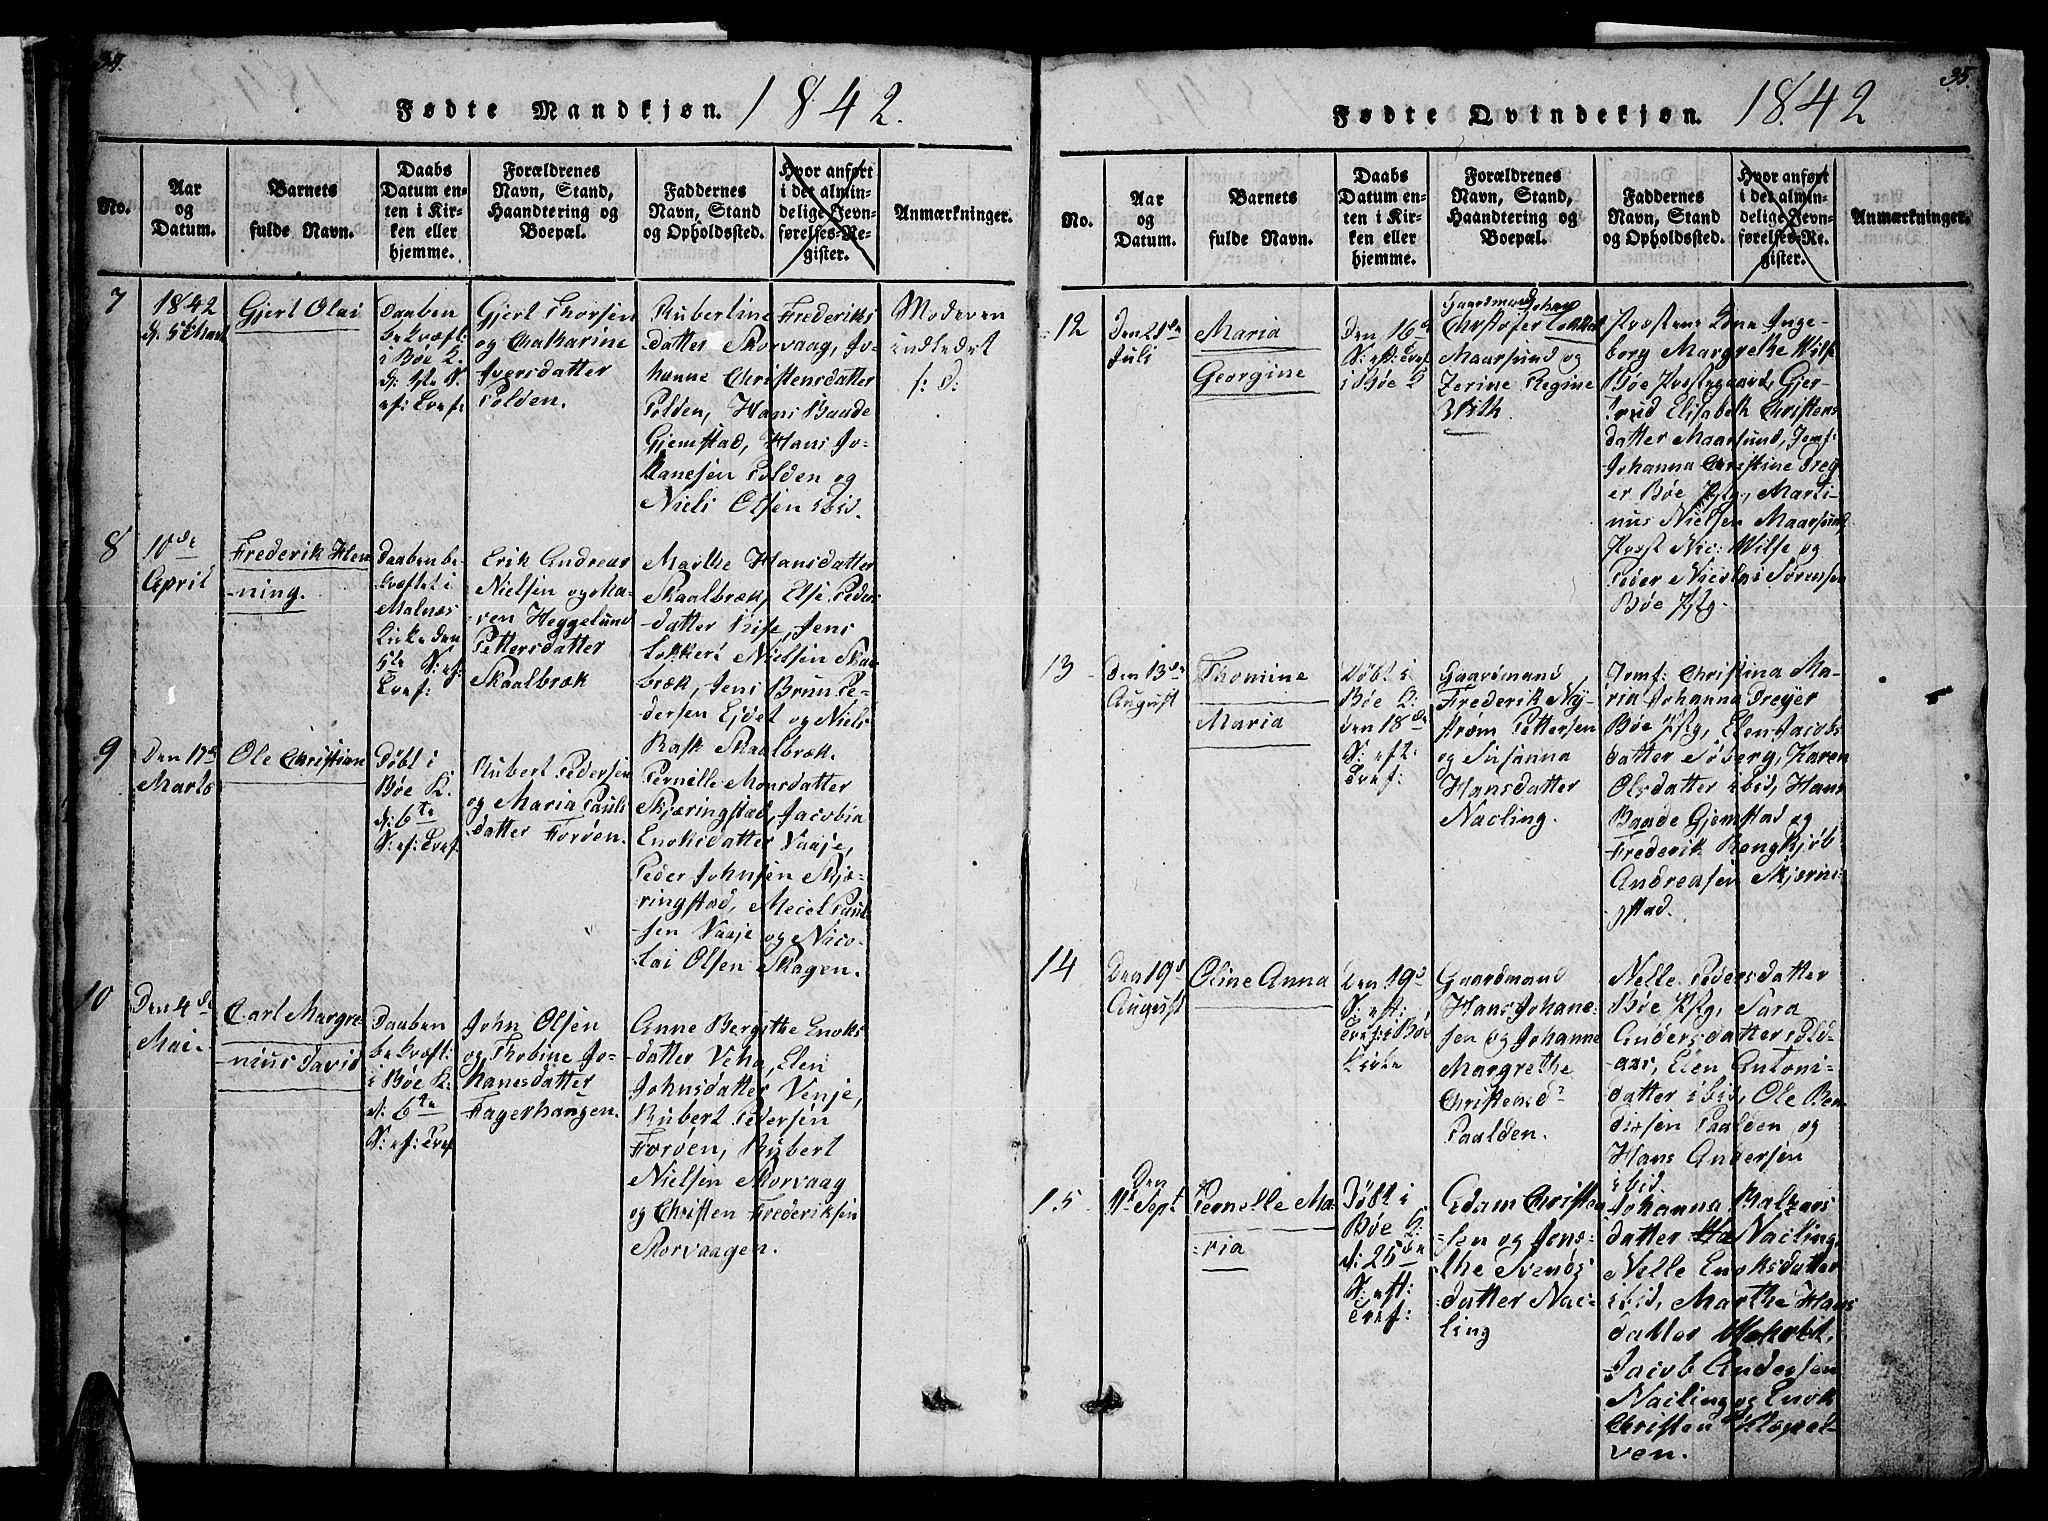 34.
Fødte Mandkjøn. 1842.
No.
Aar
og
Datum.
Barnets
fulde Navn.
Daabs
Datum en-
ten i Kir-
ken eller
hjemme.
Forældrenes
Navn, Stand,
Haandtering og
Boepæl.
Faddernes
Navn, Stand
og Opholdssted.
Hvor anført
i det almin-
delige Jevn-
førelses-Re-
gister.
Anmærkninger.
7
1842
d: 5te Mart
Gjert Olai
Daaben
bekræft:
i Bøe K.
Gjert Thorsen
og Catharine
Iversdatter
Polden.
Rubertine Frederiks
datter Skorvaag, Jo-
hanne Christensdatter
Polden, Hans Baade
Gjemstad, Hans Jo-
hanesen Polden og
Niels Olsen ibid.
Moderen
indledet
/: d:
8
10de
April
Frederik Hen
-ning.
Daaben be-
kræftet i
Malnæs
Kirke den
5te S: ef:
Tref:
Erik Andreas
Nielsen og Ma-
ren Heggelund
Pettersdatter
Skaalbræk
Marthe Hansdatter
Skaalbræk, Else Peders
-datter Rise, Jens
Lokkert Nielsen Skaa
bræk, Jens Brun Pe-
dersen Ejdet og Niels
Rask Skaalbræk.
9
Den 17de
Marts
Ole Christian
Døbt i
Bøe K.
d: 6te
S: ef: Tref.
Rubert Pedersen
og Maria Pauls
datter Forøen.
Pernille Monsdatter
Skjæringstad, Jacobia
Enoksdatter Vaaje,
Peder Johnsen Skjæ-
ringstad, Meiel Paul
sen Vaaje og Nico-
lai Olsen Skagen.
10
Den 4de
Mai.
Carl Margre
nius David
Daaben
bekræft:
i Bøe K.
d: 6te
S: ef: Tref
John Olsen
og Thobine Jo-
hanesdatter
Fagerhaugen.
Anne Bergithe Enoks
datter Veha, Elen
Johnsdatter Venje,
Rubert Pedersen
Forøen, Rubert
Nielsen Skorvaag
og Christen Frederiksen
Skorvaagen.
35.
Fødte Qvindekjøn. 1842
No.
Aar
og
Datum.
Barnets
fulde Navn.
Daabs
Datum en-
ten i Kir-
ken eller
hjemme.
Forældrenes
Navn, Stand,
Haandtering og
Boepæl.
Faddernes
Navn, Stand
og Opholdssted.
Hvor anført
i det almin-
delige Jevn-
førelses-Re-
gister.
Anmærkninger.
12
Den 21de
Juli
Maria
Georgine
Den 16de
S: eft: Tref
i Bøe K
Gaardmand Johan
Christofer Lokkert
Maarsund og
Zerine Regine
Præstens Kone Inge-
borg Margrethe Wilse
Bøe Præstegaard, Gjer-
trud Elisabeth Christens
datter Maarsund, Jomf:
Johanna Christine Drey
er Bøe Pstg., Marti-
nus Nielsen Maarsund,
Præst Nic: Wilse og
Peder Nicolai Sørensen
Bøe Pstg.
13
Den 13de
August
Thomine
Maria
Døbt i
Bøe K.
den 18de
S: eft:
Tref:
Gaardmand
Frederik Ny-
strøm Pettersen
og Susanna
Hansdatter
Nacling.
Jomf: Christina Ma-
ria Johanna Dreyer
Bøe Pstg, Elen Jacobs
datter Søberg, Karen
Olsdatter ibid, Hans
Baade Gjemstad og
Frederik Rengkjøb
Andreasen Skjærni-
gstad.
14
Den 19d
August
Oline Anna
Den 19d
S: eft:
Tref: i Bøe
Kirke
Gaardmand
Hans Johane-
sen og Johanne
Margrethe
Christensd?
Paalden.
Nelle Pedersdatter
Bøe Pstg, Sara
Andersdatter Pold
aas, Elen Antoni-
datter ibid, Ole Ben
dixsen Paalden og
Hans Andersen
ibid.
15
Den
11te Sept
Pernelle Ma-
ria
Døbt i
Bøe K.
d: 25de
S: eft:
Tref:
Adam Christian
sen og Jone-
the Svends
datter Nac-
ling
Johanna Balzars
datter Nacling,
Nelle Enoksdatter
ibid, Marthe Hans
datter
Jacob Andersen
Nacling og Enok
Christen
ven.